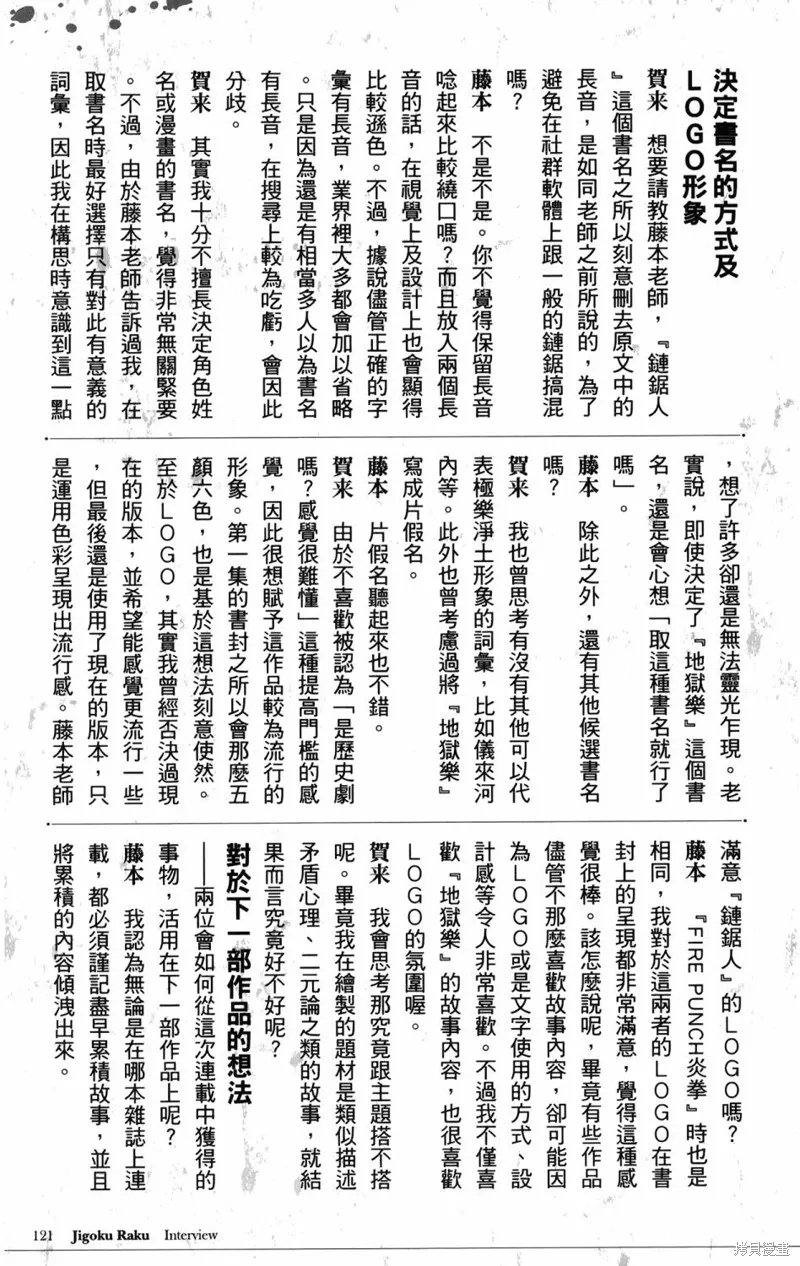 決定書名的方式及
LOGO形象
賀来　想要請教藤本老師，『鏈鋸人
』這個書名之所以刻意刪去原文中的
長音，是如同老師之前所說的，為了
避免在社群軟體上跟一般的鏈鋸搞混
嗎？
藤本　不是不是。你不覺得保留長音
唸起來比較繞口嗎？而且放入兩個長
音的話，在視覺上及設計上也會顯得
比較遜色。不過，據說儘管正確的字
彙有長音，業界裡大多都會加以省略
。只是因為還是有相當多人以為書名
有長音，在搜尋上較為吃虧，會因此
分歧。
賀来　其實我十分不擅長決定角色姓
名或漫畫的書名，覺得非常無關緊要
。不過，由於藤本老師告訴過我，在
取書名時最好選擇只有對此有意義的
詞彙，因此我在構思時意識到這一點
，想了許多卻還是無法靈光乍現。老
實說，即使決定了『地獄樂』這個書
名，還是會心想「取這種書名就行了
嗎」。
藤本　除此之外，還有其他候選書名
嗎？
賀来　我也曾思考有沒有其他可以代
表極樂淨土形象的詞彙，比如儀來河
內等。此外也曾考慮過將『地獄樂』
寫成片假名。
藤本　片假名聽起來也不錯。
賀来　由於不喜歡被認為「是歷史劇
嗎？感覺很難懂」這種提高門檻的感
覺，因此很想賦予這作品較為流行的
形象。第一集的書封之所以會那麼五
顏六色，也是基於這想法刻意使然。
至於LOGO，其實我曾經否決過現
在的版本，並希望能感覺更流行一些
，但最後還是使用了現在的版本，只
是運用色彩呈現出流行感。藤本老師
滿意『鏈鋸人』的LOGO嗎？
藤本　『FIRE PUNCH炎拳』時也是
相同，我對於這兩者的LOGO在書
封上的呈現都非常滿意，覺得這種感
覺很棒。該怎麼說呢，畢竟有些作品
儘管不那麼喜歡故事內容，卻可能因
為LOGO或是文字使用的方式、設
計感等令人非常喜歡。不過我不僅喜
歡『地獄樂』的故事內容，也很喜歡
LOGO的氛圍喔。
賀来　我會思考那究竟跟主題搭不搭
呢。畢竟我在繪製的題材是類似描述
矛盾心理、二元論之類的故事，就結
果而言究竟好不好呢？
對於下一部作品的想法
——兩位會如何從這次連載中獲得的
事物，活用在下一部作品上呢？
藤本　我認為無論是在哪本雜誌上連
載，都必須謹記盡早累積故事，並且
將累積的內容傾洩出來。
121 Jigoku Raku Interview
拷貝漫畫